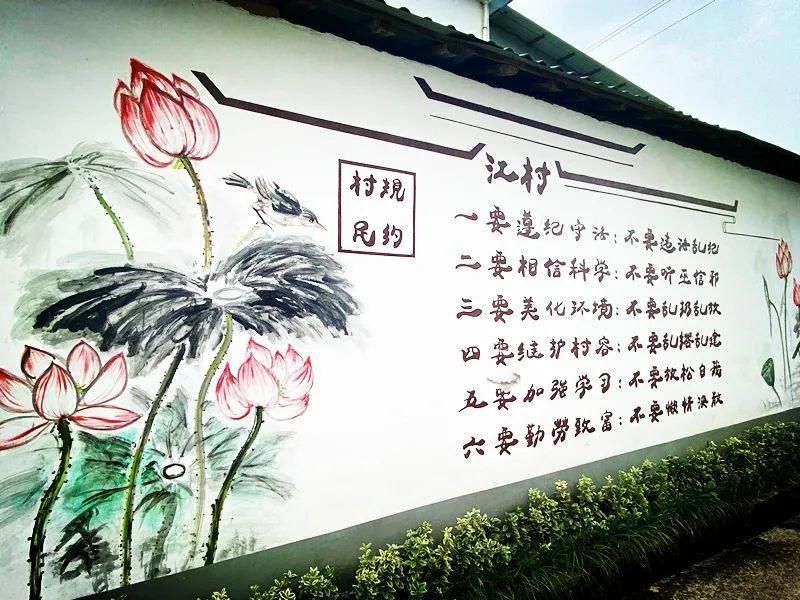 江村
村规
民约
一要遵纪守法:不要违法乱纪
二要相信科学:不要听巫信邪
三要美化环境:不要乱扔乱放
四要维护村容:不要乱搭乱建
五要加强学习:不要放松自
六要勤劳致富:不要懒惰